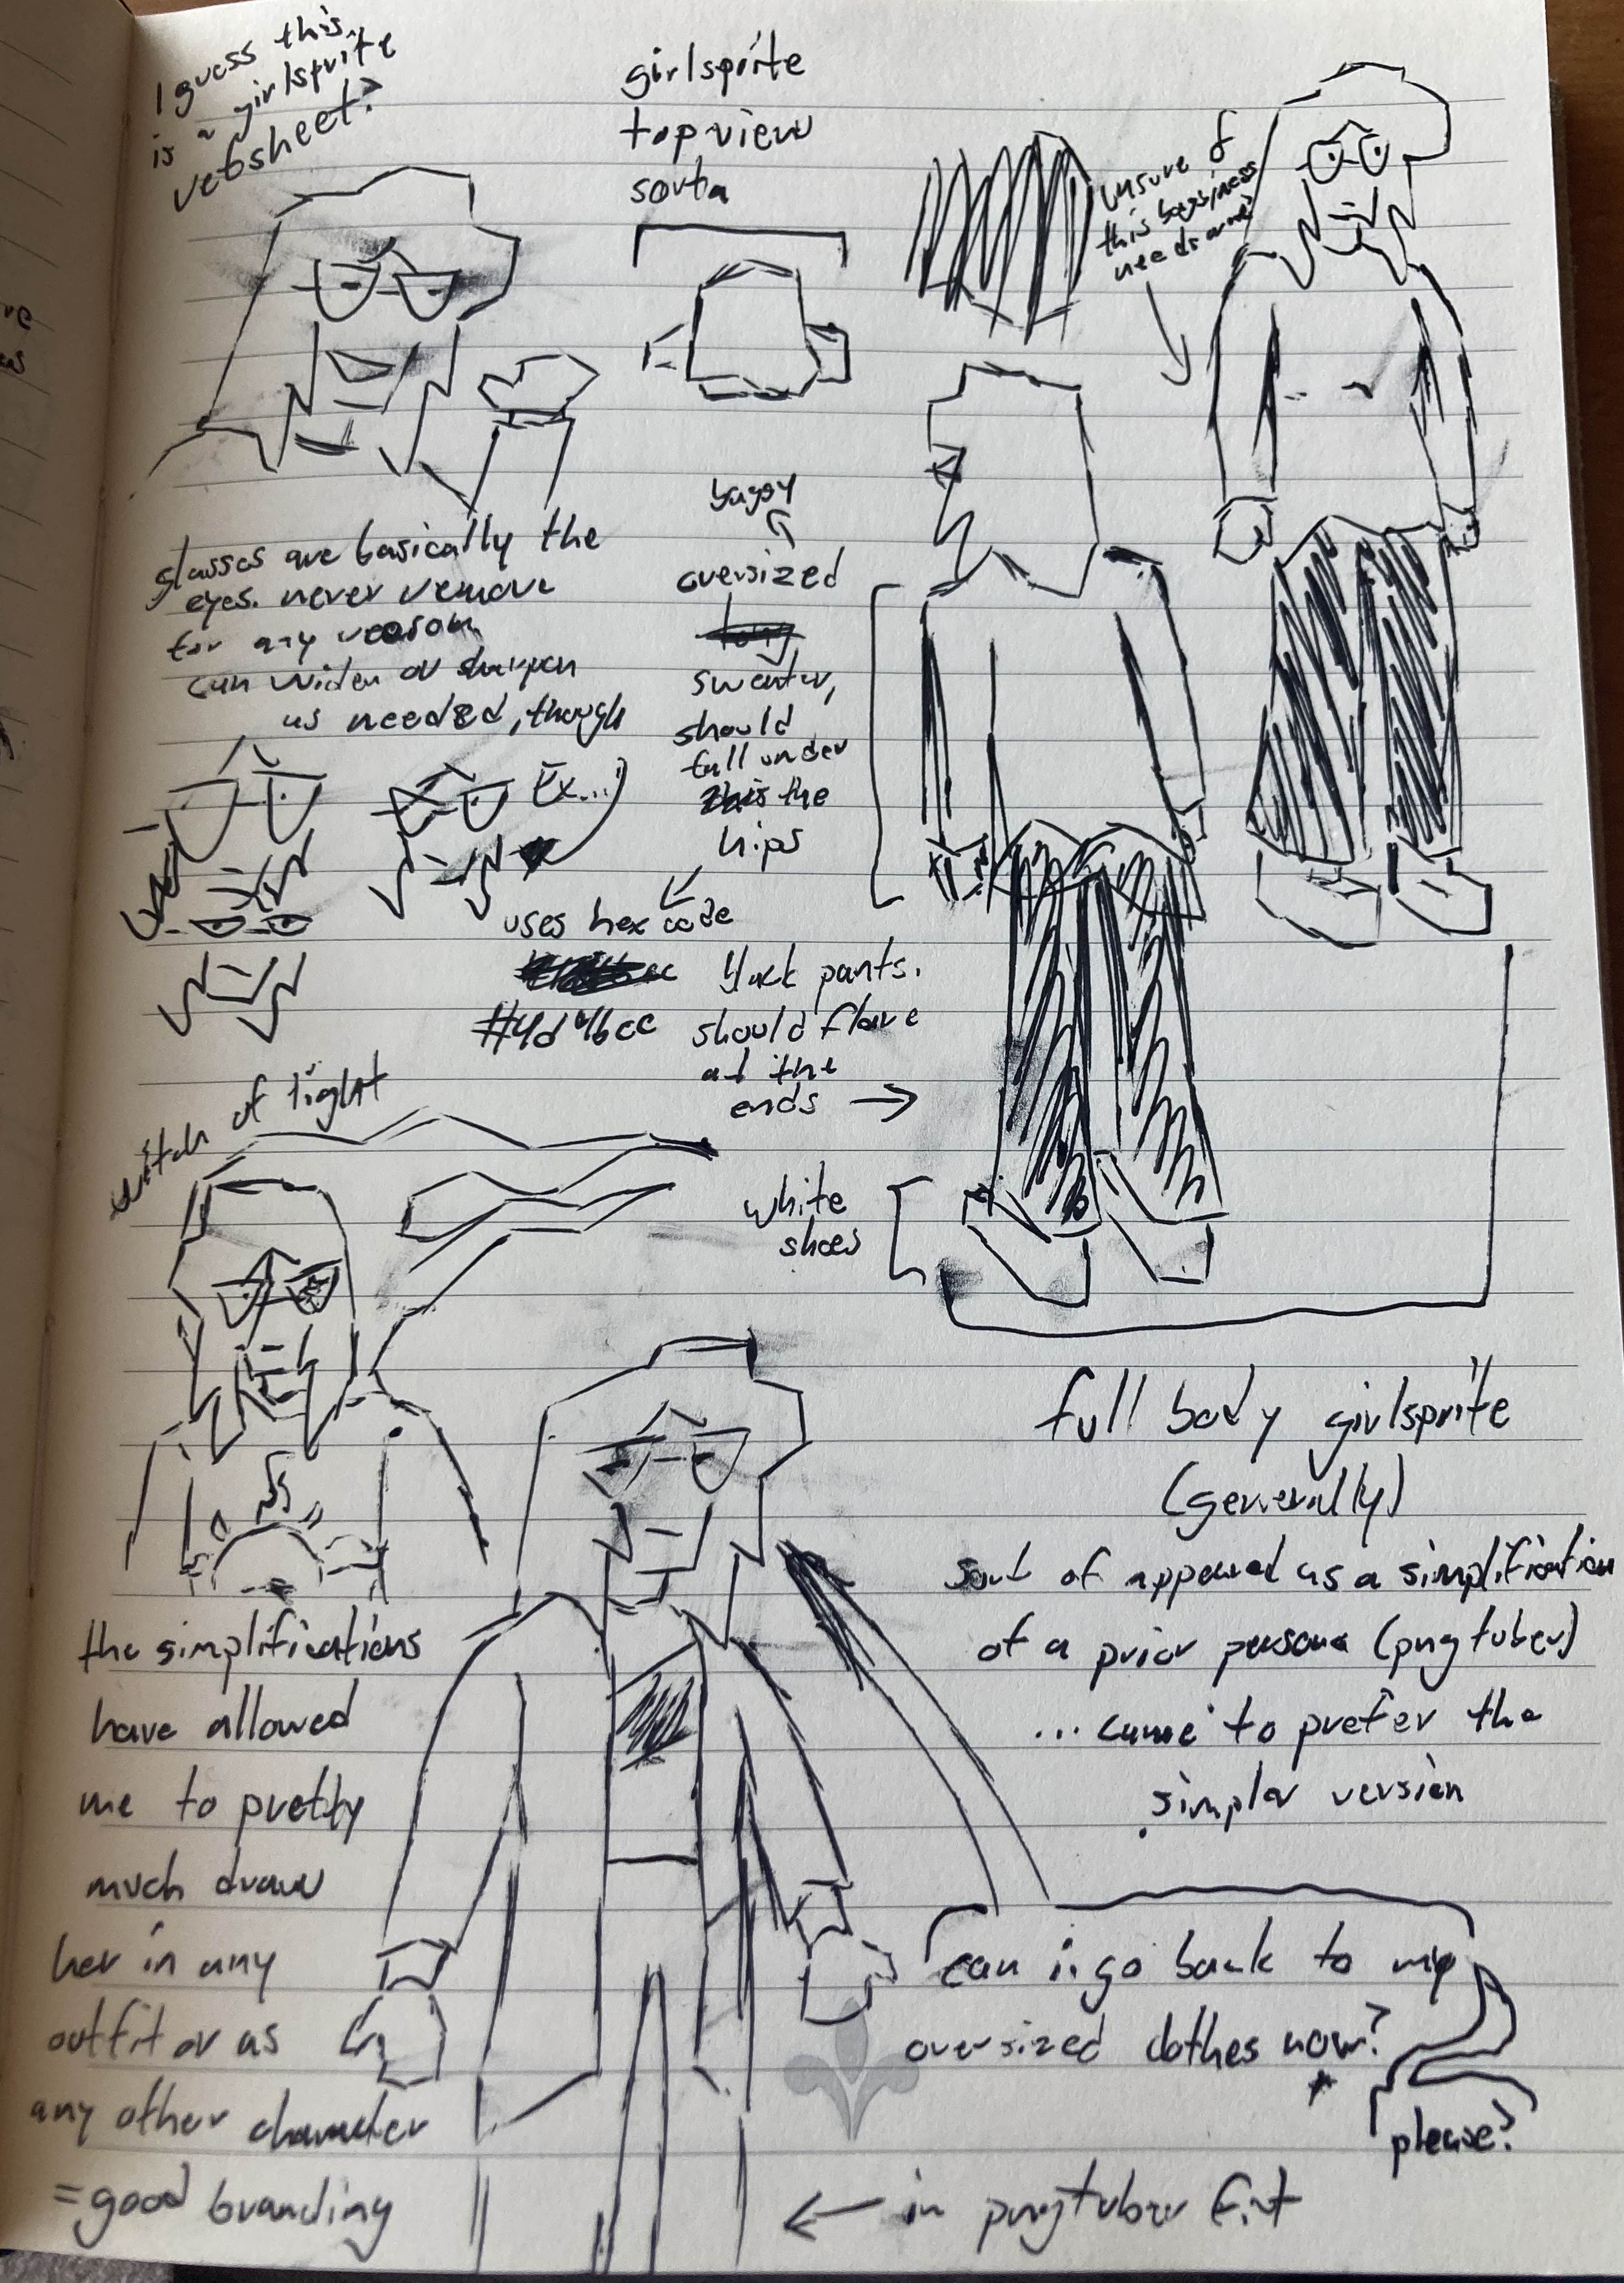 I guess this
is a girlsprite
refsheet?
girlsprite
top view
sorta
unsure if
this bagginess
needs
glasses are basically the
eyes. never remove
for any reason
can widen or sharpen
as needed, though
Ex...
baggy
oversized
sweater,
should
fall under
the
hips
uses hex code
#4d46cc
black pants.
should flare
at the
ends
white
shoes
witch of light
full body girlsprite
(generally)
sort of appeared as a simplification
of a prior persona (pngtuber)
... came to prefer the
simpler version
the simplifications
have allowed
me to pretty
much draw
her in any
outfit or as
any other character
= good branding
can i go back to my
oversized clothes now?
please?
in pngtuber fit